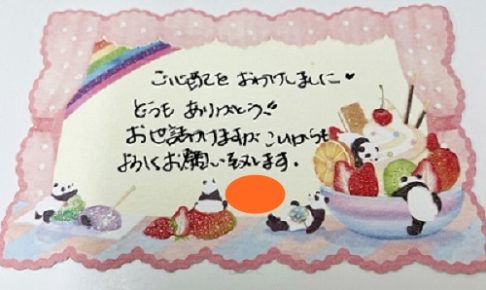 ご心配をおかけしました♥
どうもありがとう!!
お世話かけますが これからも
よろしくお願い致します。